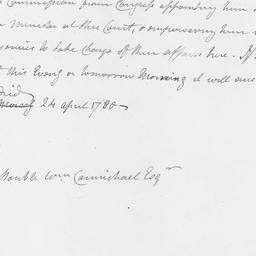 Commission from Congress appointing him
Minister at this Court, & empowering him
to take charge of their affairs here. If
this Eveng or tomorrow Morning it will
24 april 1780
Wm Carmichael Esqr